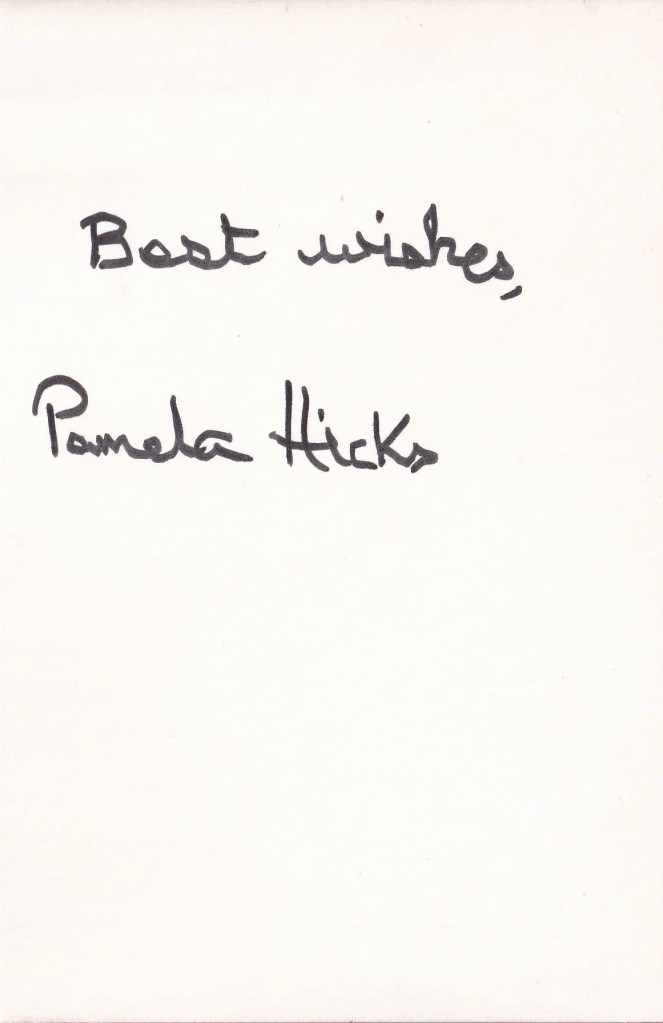 Best wishes,
Pamela Hicks